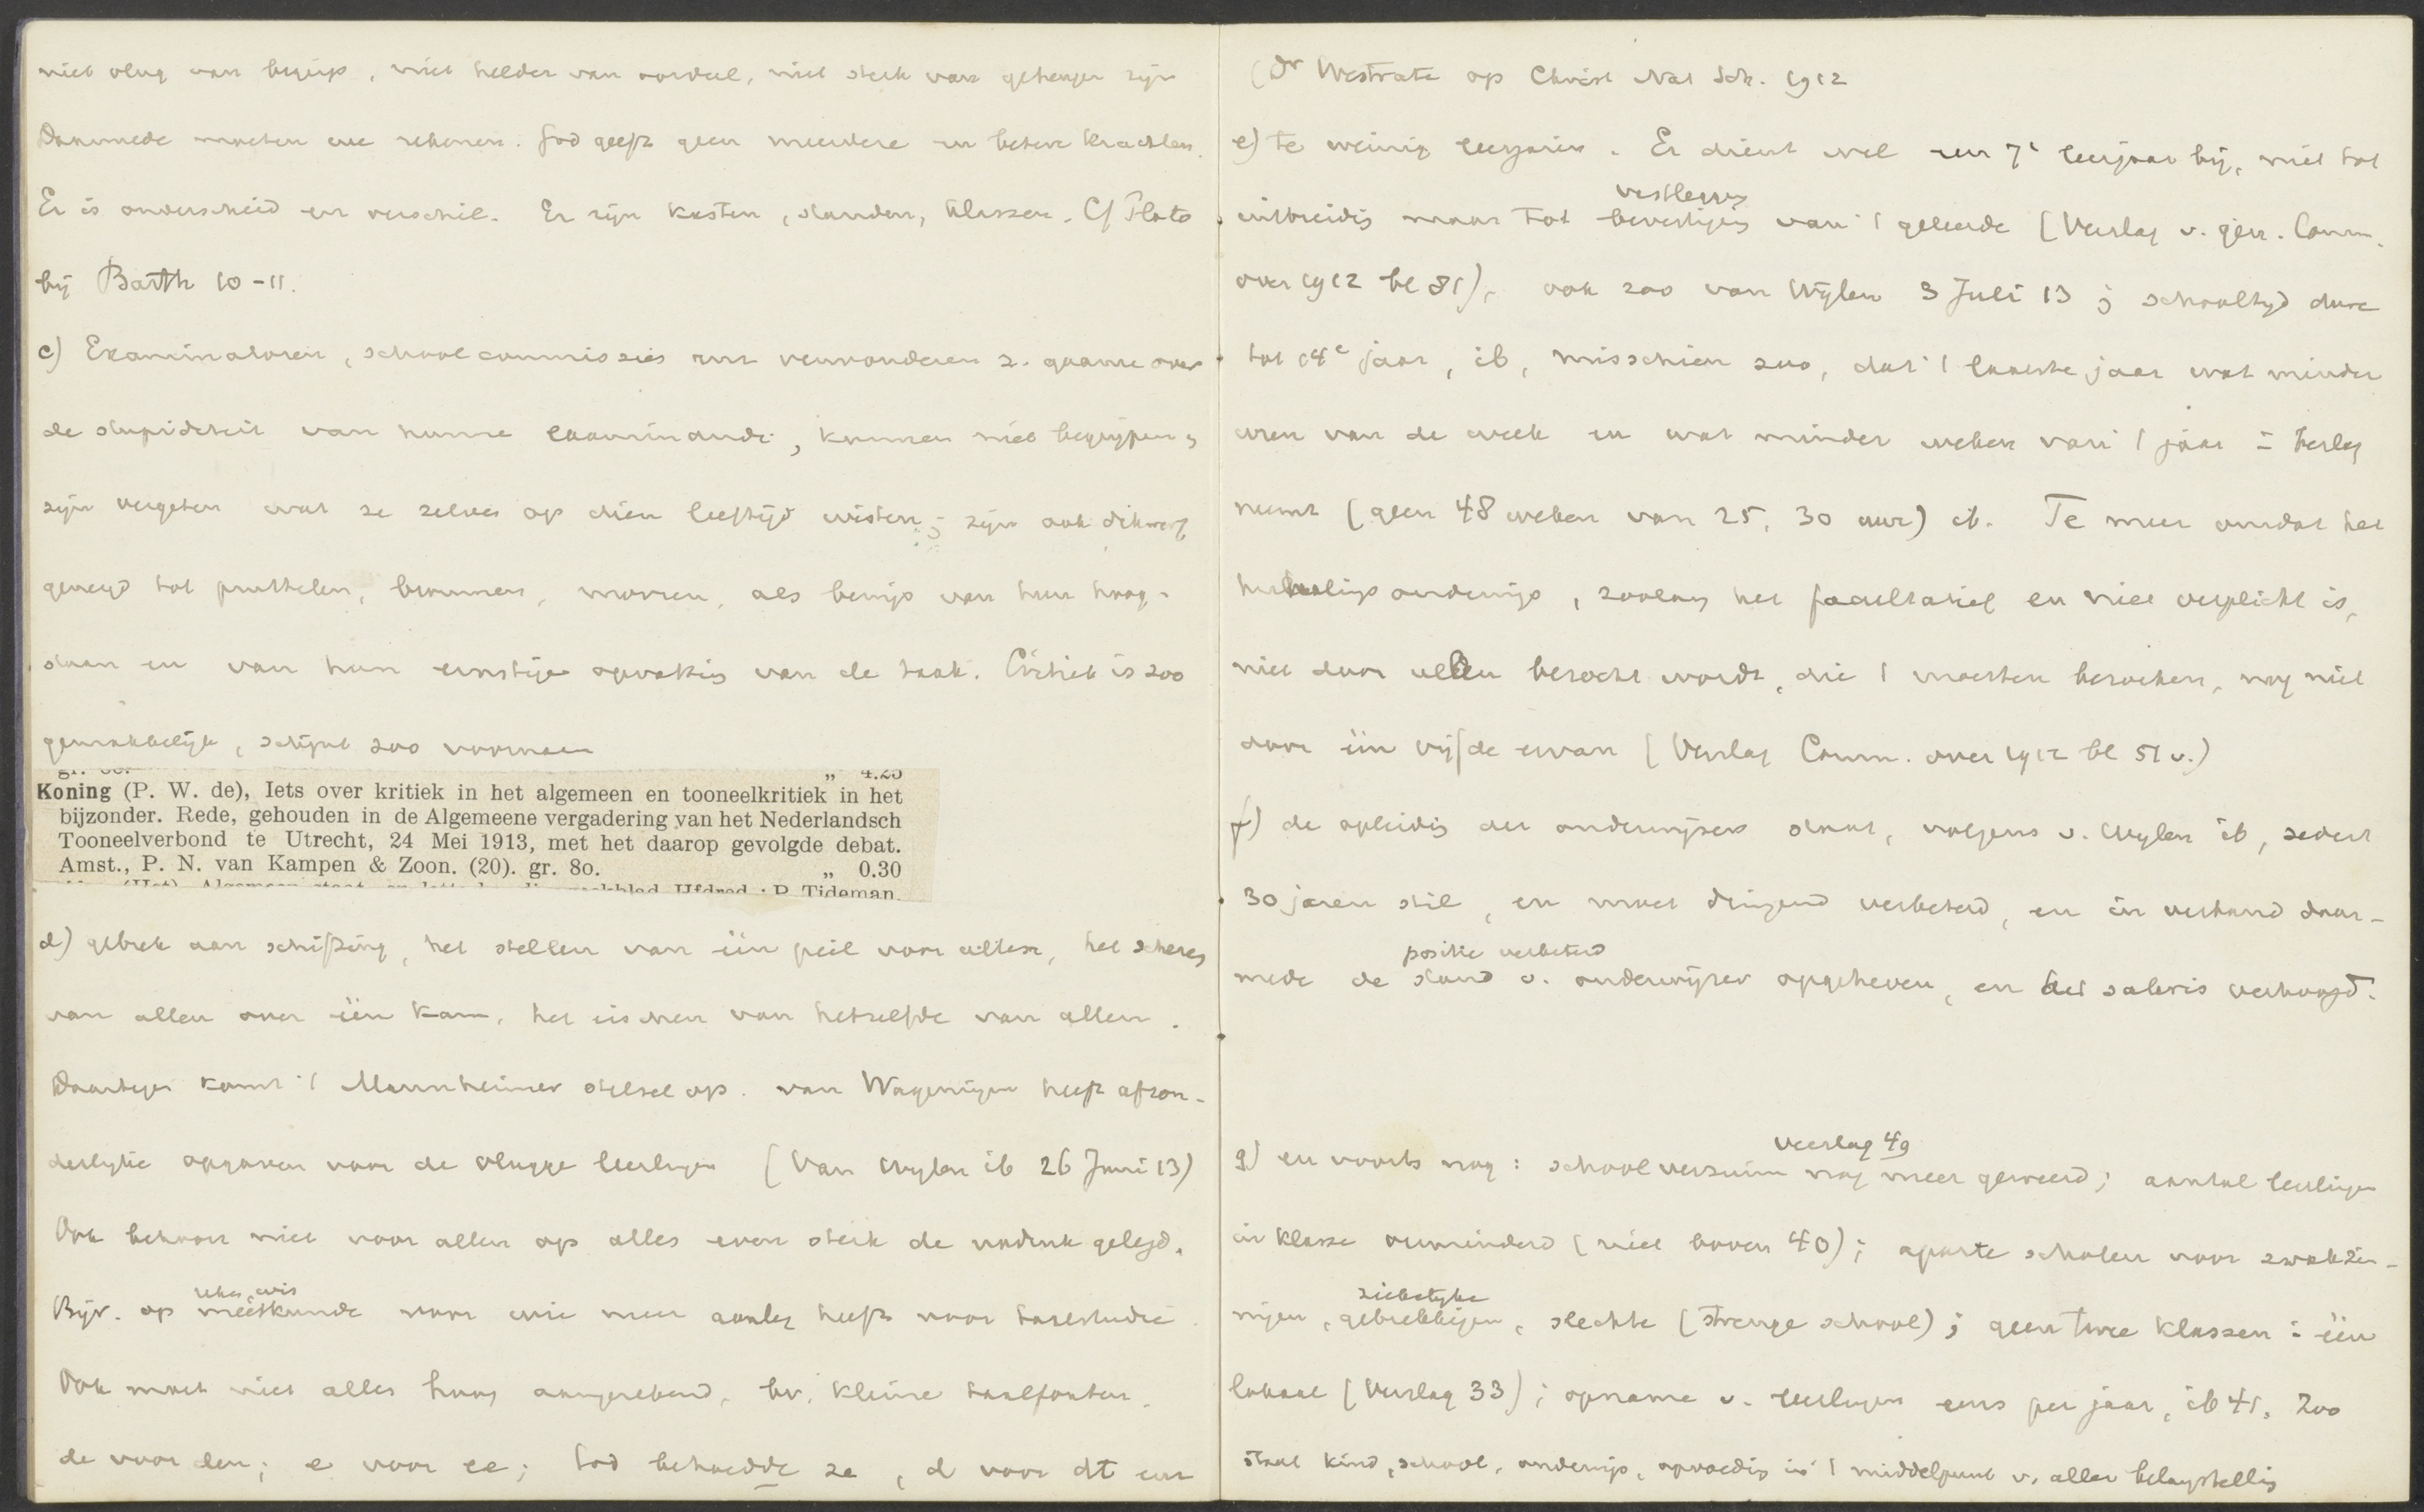 niet vlug van begrip, niet helder van oordeel, niet sterk van geheugen zijn
Daarmede moeten we rekenen. God geeft geen meerdere en betere krachten.
Er is onderscheid en verschil. Er zijn kasten, standen, klassen. Cf Plato
bij Barth 10-11.
c) Examinatoren, schoolcommissies enz verwonderen z. gaarne over
de stupiditeit van hunne examinandi, kunnen niet begrijpen,
zijn vergeten wat ze zelve op dien leeftijd wisten; zijn ook dikwerf
geneigd tot pruttelen, brommen, morren, als bewijs van hun hoog-
staan en van hun ernstige opvatting van de taak. Critiek is zoo
gemakkelijk, schijnt zoo voornaam
gr. 8o. „ 4.25
Koning (P. W. de), Iets over kritiek in het algemeen en tooneelkritiek in het
bijzonder. Rede, gehouden in de Algemeene vergadering van het Nederlandsch
Tooneelverbond te Utrecht, 24 Mei 1913, met het daarop gevolgde debat.
Amst., P. N. van Kampen & Zoon. (20). gr. 8o. „ 0.30
Hfdred.: P. Tideman.
d) gebrek aan schifting, het stellen van één peil voor allen, het scheren
van allen over één kam, het eischen van hetzelfde van allen.
Daartegen komt 't Mannheimer stelsel op. van Wageningen heeft afzon-
derlijke opgaven voor de vlugge leerlingen (Van Wijlen ib 26 Juni 13)
Ook behoort niet voor allen op alles even sterk de nadruk gelegd.
reken, wis
Bijv. op meetkunde voor wie meer aanleg heeft voor taalstudie.
Ook moet niet alles hoog aangerekend, bv. kleine taalfouten.
de voor den; e voor ee; God behoedde ze, d voor dt enz
(Dr Westrate op Christ Nat Sch. 1912
e) te weinig leerjaren. Er dient wel een 7e leerjaar bij, niet tot
vastlegging
uitbreidig maar tot bevestiging van 't geleerde (Verslag v. gerr. Comm.
over 1912 bl 81), ook zoo van Wijlen 3 Juli 13; schooltijd dure
tot 14e jaar, ib, misschien zoo, dat 't laatste jaar wat minder
uren van de week en wat minder weken van 't jaar in beslag
neemt (geen 48 weken van 25, 30 uur) ib. Te meer omdat het
herhalings onderwijs, zoolang het facultatief en niet verplicht is,
niet door allen bezocht wordt, die 't moesten bezoeken, nog niet
door één vijfde ervan (Verslag Comm. over 1912 bl 51 v.)
f) de opleidig der onderwijzers staat, volgens v. Wijlen ib, sedert
30 jaren stil, en moet dringend verbeterd, en in verband daar-
positie verbeterd
mede de stand v. onderwijzer opgeheven, en het salaris verhoogd.
verslag 49
g) en voorts nog: school verzuim nog meer geweerd; aantal leerlingen
in klasse verminderd (niet boven 40); aparte scholen voor zwakzin-
ziekelijke
nigen, gebrekkigen, slechte (strenge school); geen twee klassen in één
lokaal (Verslag 33); opname v. leerlingen eens per jaar, ib 41. Zoo
staat kind, school, onderwijs, opvoedig in 't middelpunt v. aller belangstellig